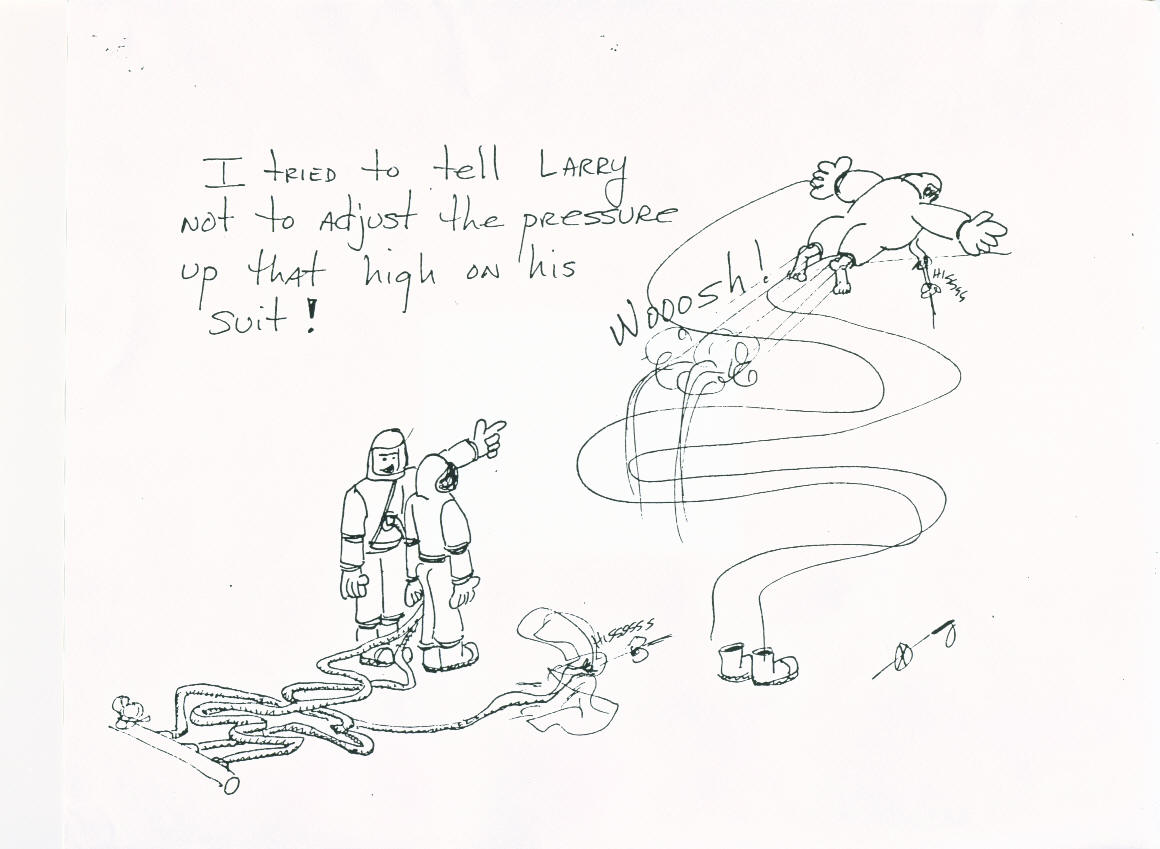 I tried to tell Larry
not to adjust the pressure
up that high on his
suit!
Wooosh!
Hissss
Hisssss